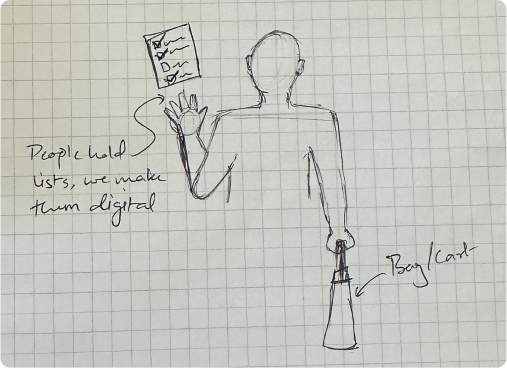 People hold
lists, we make
them digital
Bag/Cart